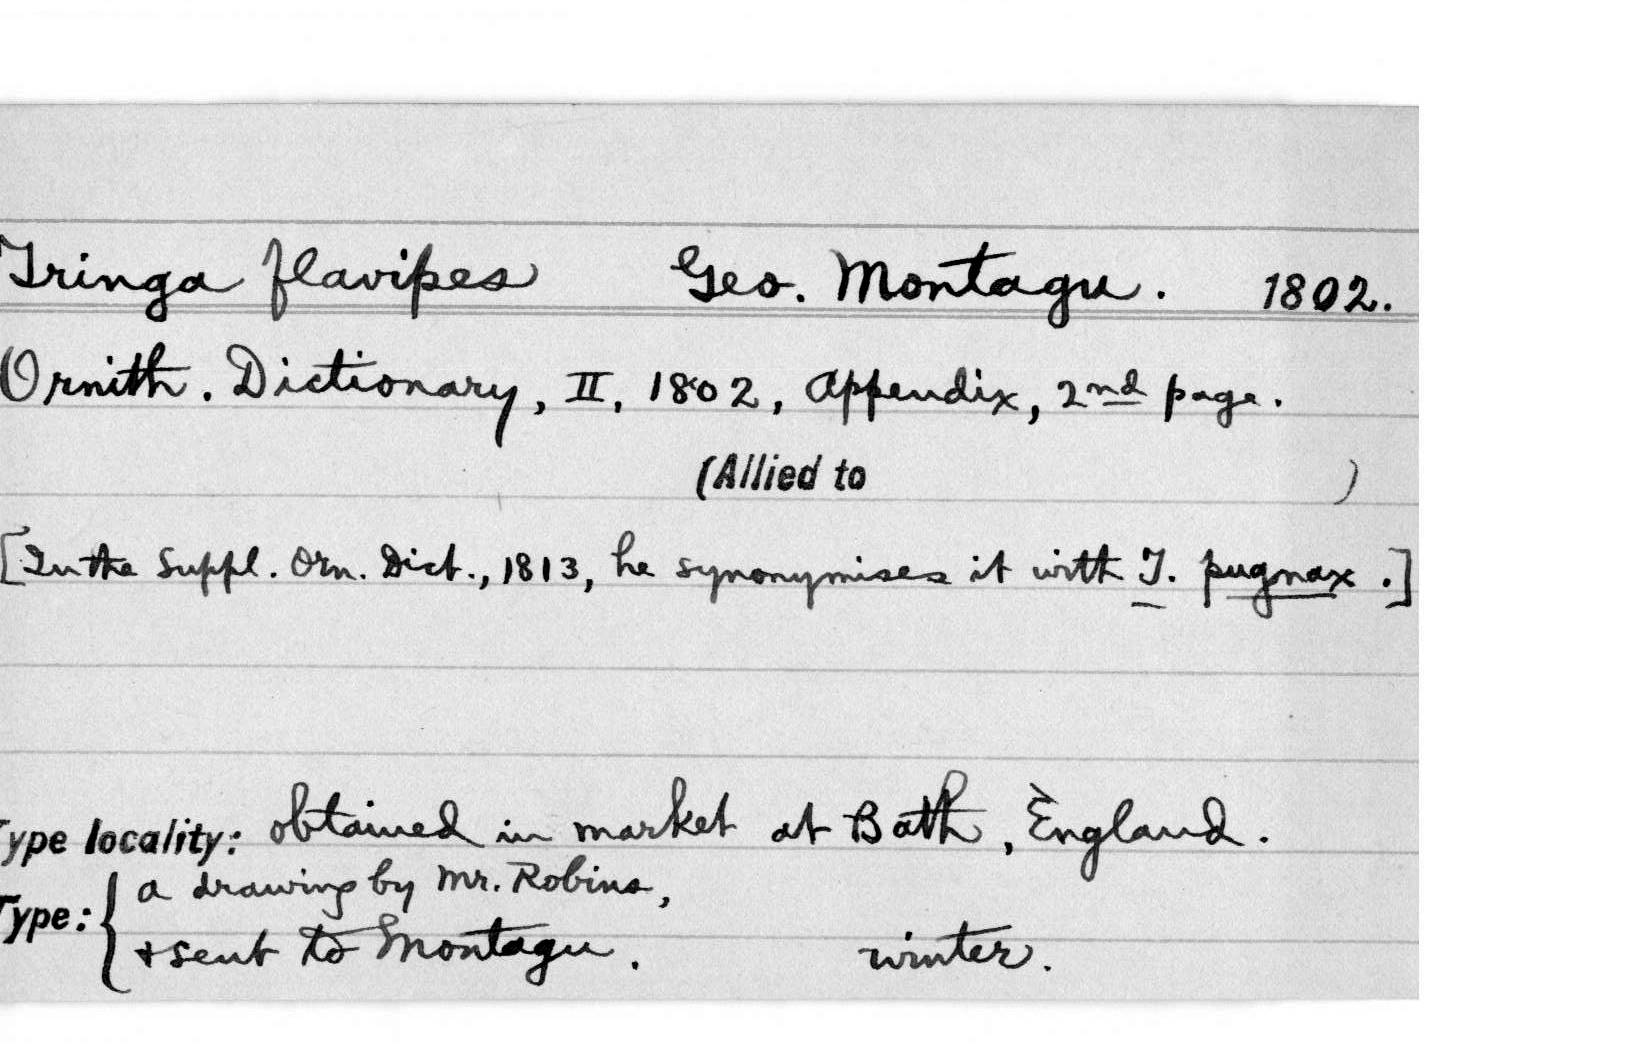 Tringa flavipes Geo. Montagu. 1802.
Ornith. Dictionary, II, 1802, Appendix, 2nd page.
(Allied to )
[In the Suppl. Orn. Dict., 1813, he synonymises it with T. pugnax.]
Type locality: obtained in market at Bath, England.
Type: { a drawing by Mr. Robins,
+ sent to Montagu. winter.